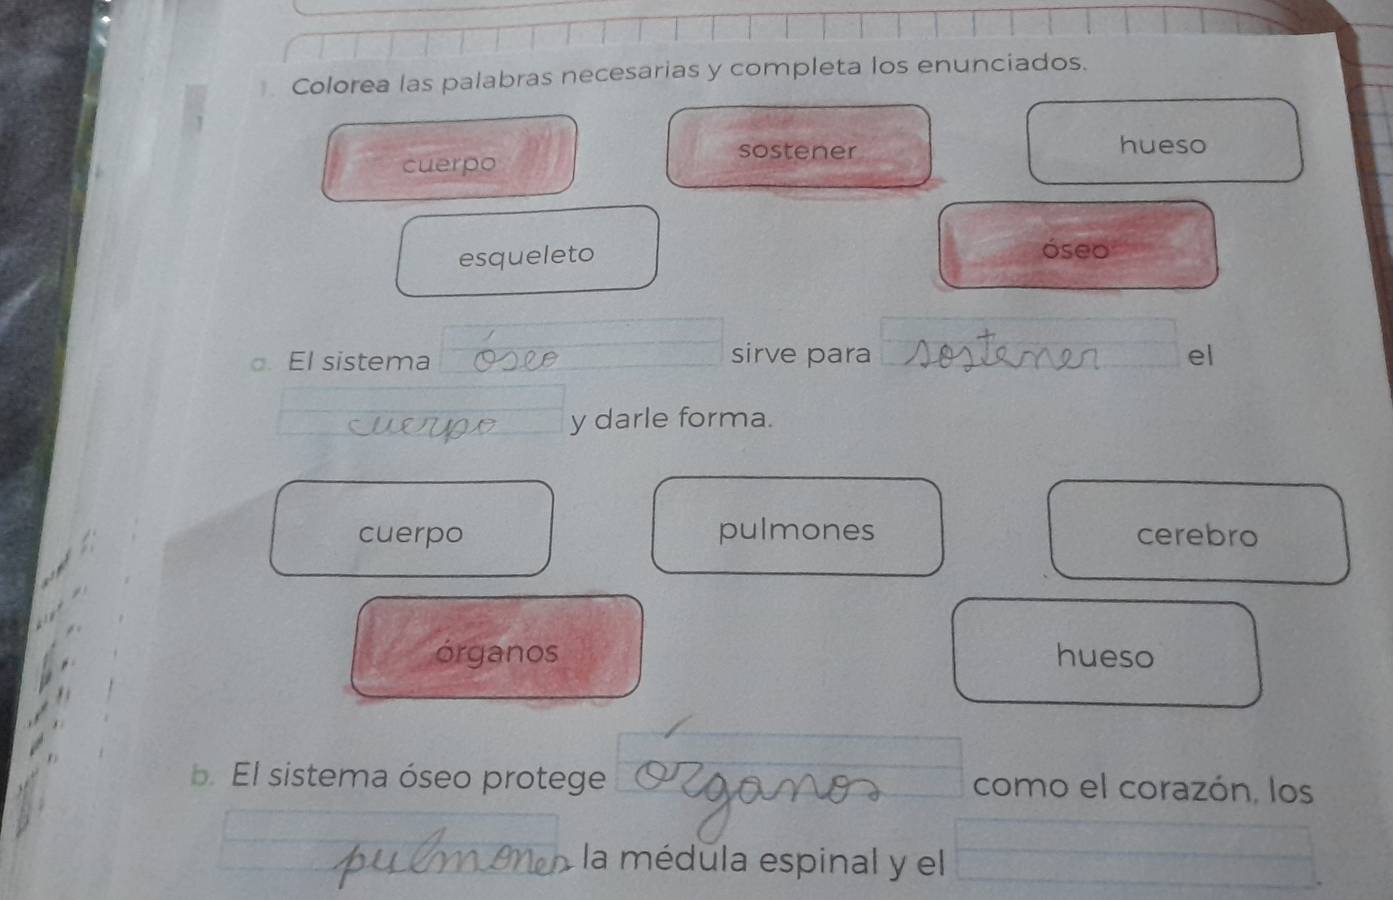 1. Colorea las palabras necesarias y completa los enunciados.
cuerpo sostener hueso
esqueleto óseo
a. El sistema óseo sirve para sostener el
cuerpo y darle forma.
cuerpo pulmones cerebro
órganos hueso
b. El sistema óseo protege órganos como el corazón, los
pulmones la médula espinal y el .